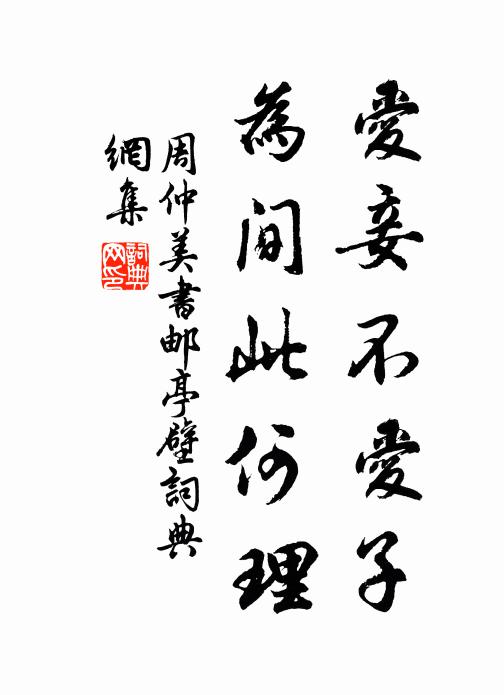 愛妾不愛子
為間此何理
周仲美書邮亭壁詞典
網集
詞典网印